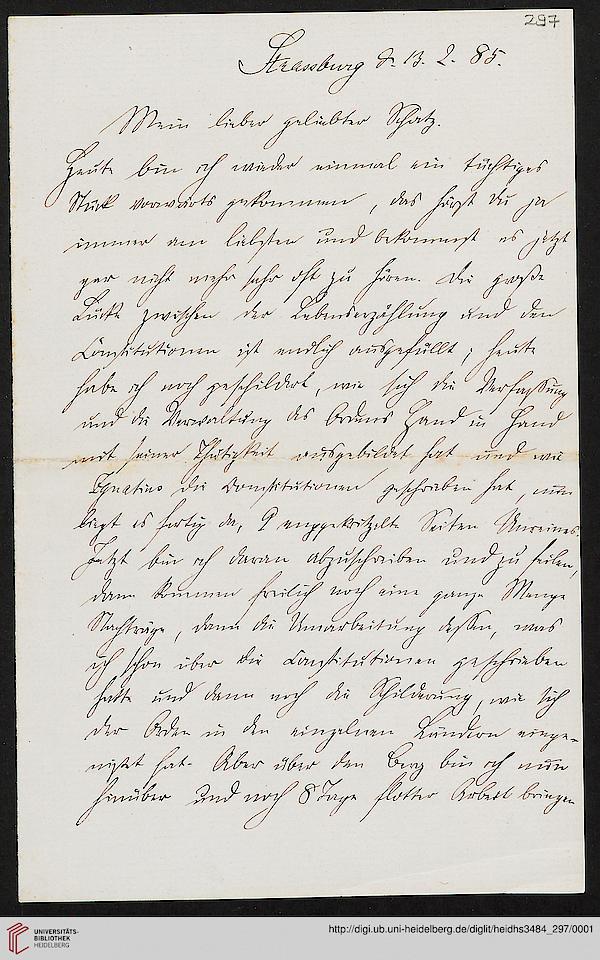 297
Strassburg d. 13. 2. 85.
Mein lieber geliebter Schatz.
Heute bin ich wieder einmal ein tüchtiges
Stück vorwärts gekommen, das hörst du ja
immer am liebsten und bekommst es jetzt
gar nicht mehr sehr oft zu hören. Die große
Lücke zwischen der Lebenserzählung und den
Constitutionen ist endlich ausgefüllt; heute
habe ich noch geschildert, wie sich die Verfassung
und die Verwaltung des Ordens Hand in Hand
mit seiner Thätigkeit ausgebildet hat und wie
Ignatius die Constitutionen geschrieben hat, nun
liegt es fertig da, 9 enggekritzelte Seiten Unreines.
Jetzt bin ich daran abzuschreiben und zu feilen,
dann kommen freilich noch eine ganze Menge
Nachträge, dann die Umarbeitung dessen, was
ich schon über die Constitutionen geschrieben
hatte und dann noch die Schilderung, wie sich
der Orden in den einzelnen Ländern einge-
nistet hat. Aber über den Berg bin ich nun
hinüber und noch 8 Tage flotter Arbeit bringen
UNIVERSITÄTS-
BIBLIOTHEK
HEIDELBERG
http://digi.ub.uni-heidelberg.de/diglit/heidhs3484_297/0001